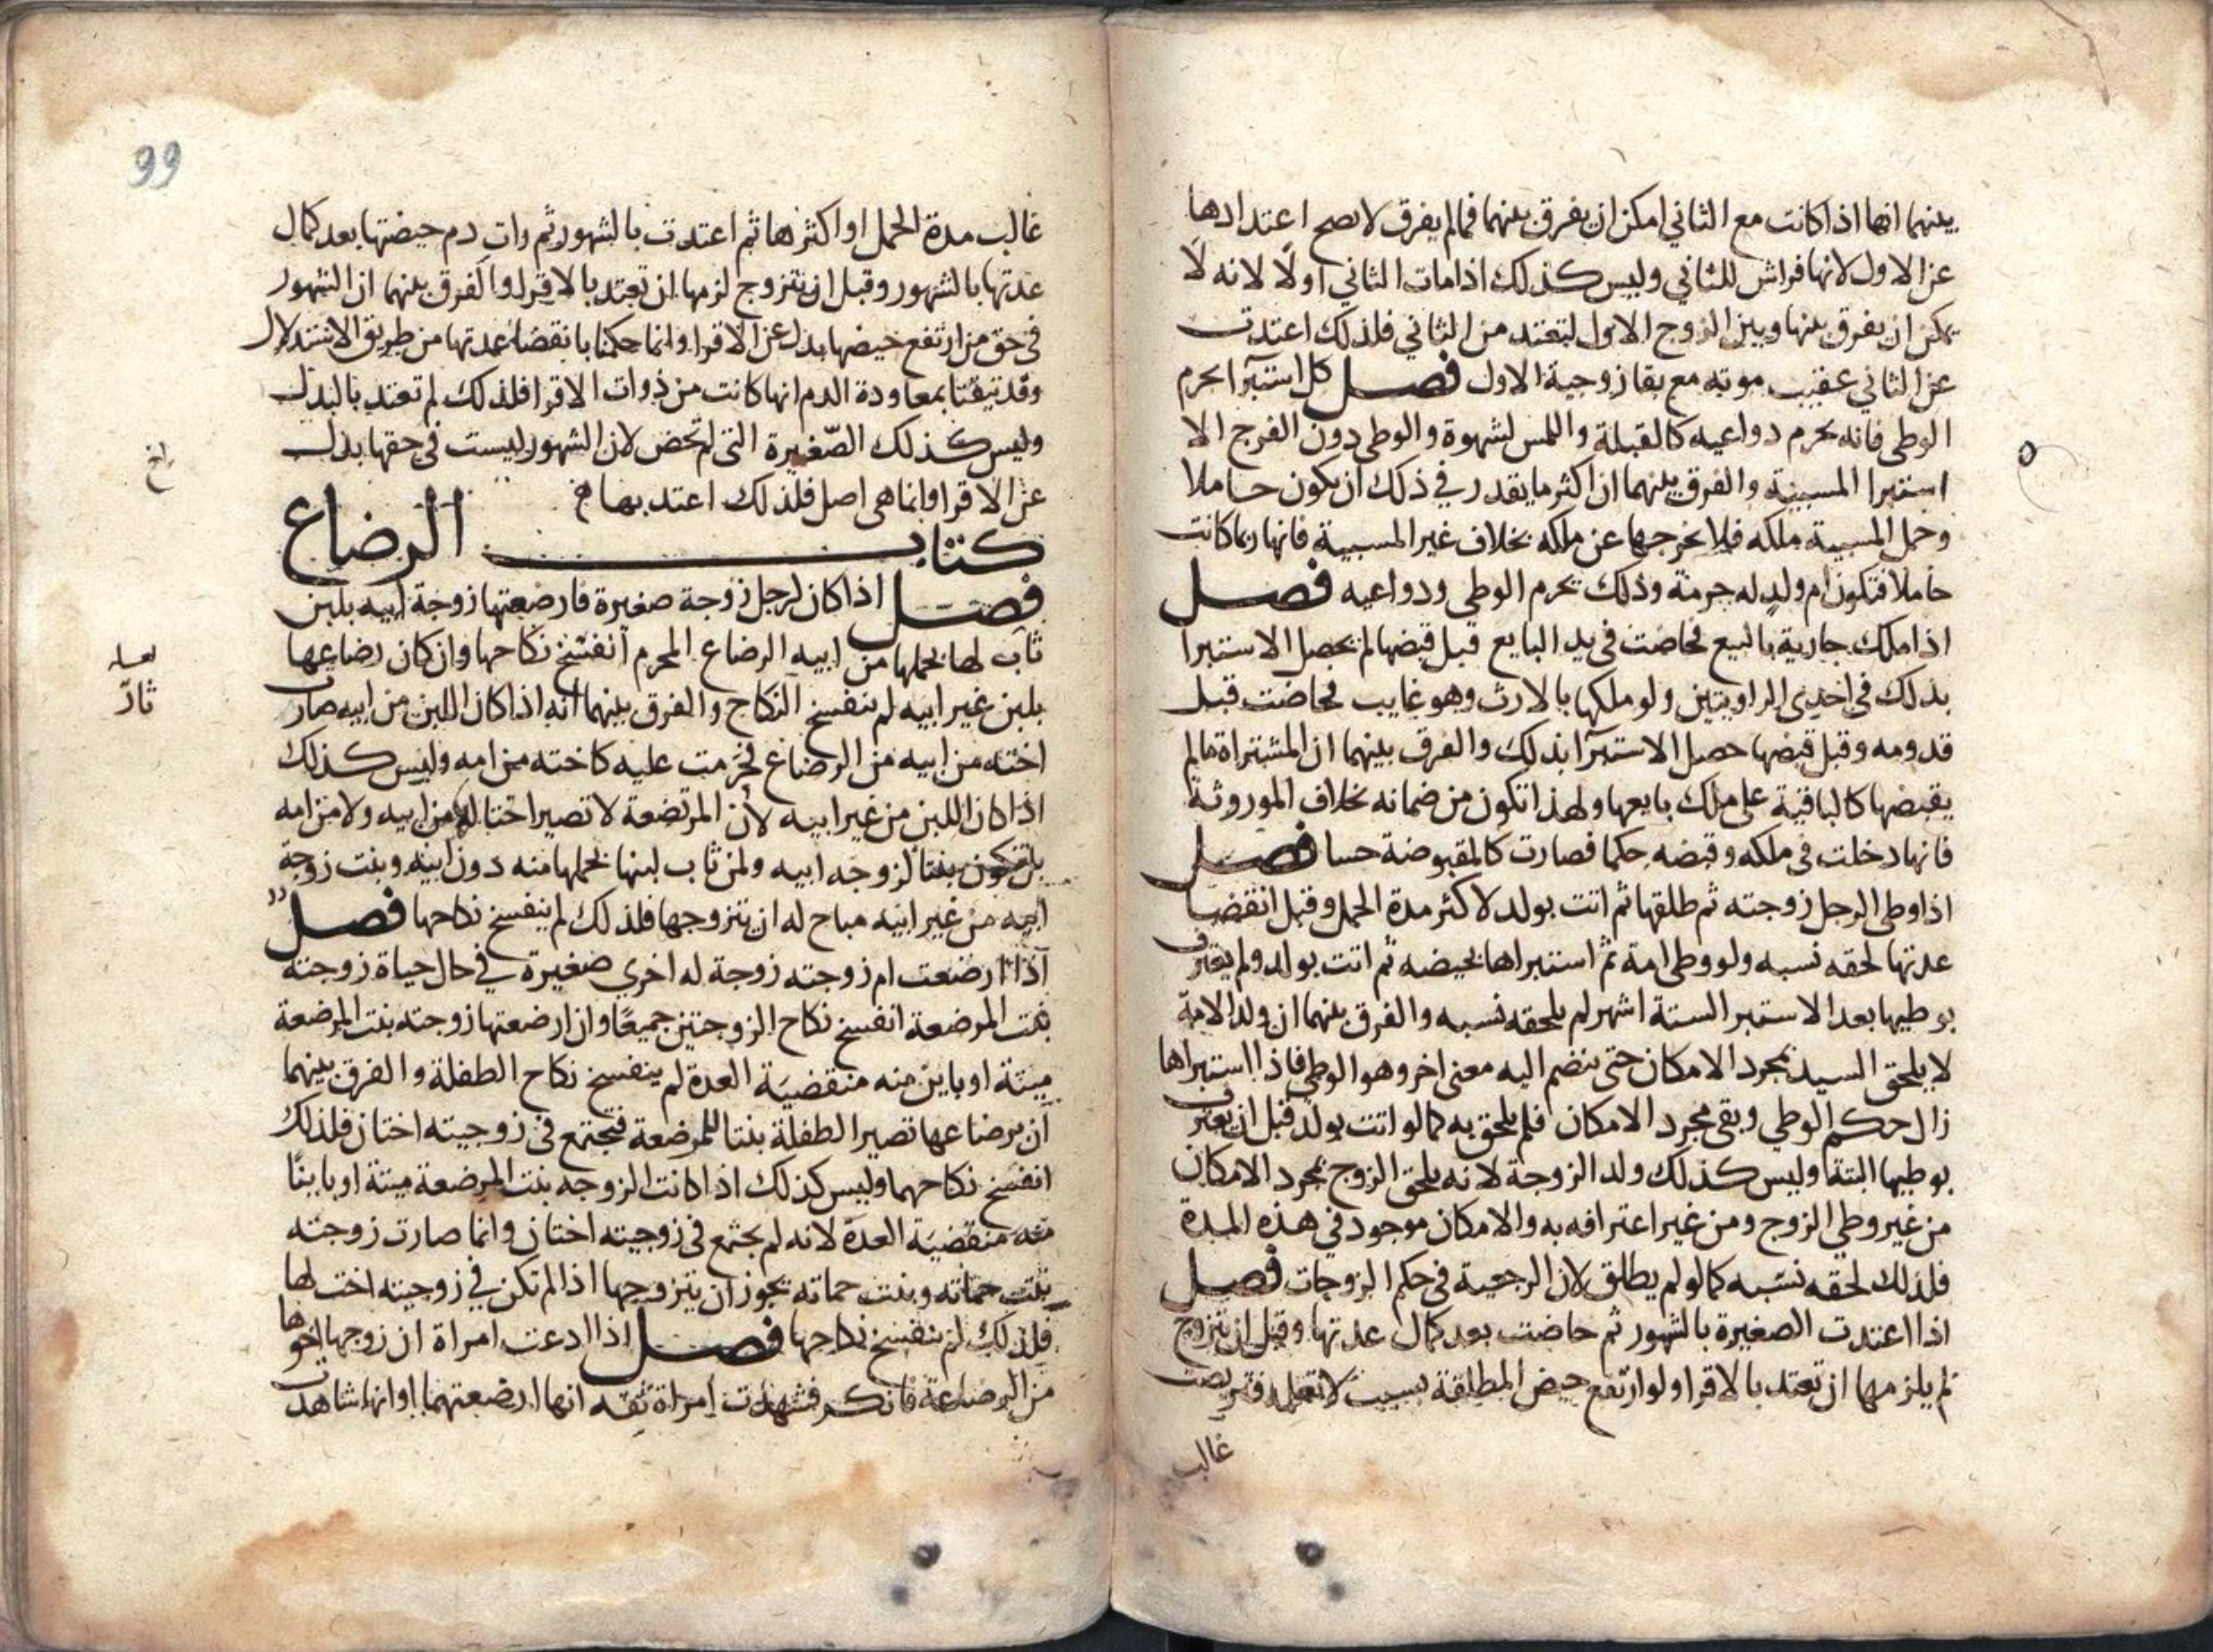 بينهما انها اذا كانت مع الثاني امكن ان يفرق بينهما فمالم يفرق لا يصح اعتدادها
عن الاول لانها فراش للثاني وليس كذلك اذا مات الثاني اولا لانه لا
يمكن ان يفرق بينها وبين الزوج الاول لتعتد من الثاني فلذلك اعتدت
عن الثاني عقيب موته مع بقا زوجية الاول فصل كل استبرآ يحرم
الوطى فانه يحرم دواعيه كالقبلة واللمس لشهوة والوطى دون الفرج الا
استبرا المسبية والفرق بينهما ان اكثر ما يقدر في ذلك ان يكون حاملا
وحمل المسبية ملكه فلا يخرجها عن ملكه بخلاف غير المسبية فانها ربما كانت
حاملا فتكون ام ولد له حرمة وذلك يحرم الوطى ودواعيه فصل
اذا ملك جارية بالبيع فحاضت في يد البايع قبل قبضها لم يحصل الاستبرا
بذلك في احدى الراويتين ولو ملكها بالارث وهو غايب فحاضت قبل
قدومه وقبل قبضها حصل الاستبرآ بذلك والفرق بينهما ان المشتراة مالم
يقبضها كالباقية على ملك بايعها ولهذا تكون من ضمانه بخلاف الموروثة
فانها دخلت في ملكه وقبضه حكما فصارت كالمقبوضة حسا فصل
اذا وطى الرجل زوجته ثم طلقها ثم اتت بولد لاكثر مدة الحمل وقبل انقضا
عدتها لحقه نسبه ولو وطى امة ثم استبراها بحيضه ثم اتت بولد ولم يعترف
بوطيها بعد الاستبرا لستة اشهر لم يلحقه نسبه والفرق بينهما ان ولد الامة
لا يلحق السيد بمجرد الامكان حتى ينضم اليه معنى اخر وهو الوطى فاذا استبراها
زال حكم الوطي وبقى مجرد الامكان فلم يلحق به كما لو اتت بولد قبل ان يعترف
بوطيها البتة وليس كذلك ولد الزوجة لانه يلحق الزوج بمجرد الامكان
من غير وطى الزوج ومن غير اعترافه به والامكان موجود في هذه المدة
فلذلك لحقه نسبه كما لو لم يطلق لان الرجعية في حكم الزوجات فصل
اذا اعتدت الصغيرة بالشهور ثم حاضت بعد كمال عدتها وقبل ان تتزوج
لم يلزمها ان تعتد بالاقرا ولو ارتفع حيض المطلقة بسبب لا تعلمه فتربصت
غالب
99
غالب مدة الحمل او اكثرها ثم اعتدت بالشهور ثم رات دم حيضتها بعد كمال
عدتها بالشهور وقبل ان تتزوج لزمها ان تعتد بالاقرا والفرق بينهما ان الشهور
في حق من ارتفع حيضها بدل عن الاقرا وانما حكمنا بانقضا عدتها من طريق الاستدلال
وقد تيقنا بمعاودة الدم انها كانت من ذوات الاقرا فلذلك لم تعتد بالبدل
وليس كذلك الصغيرة التى لم تحض لان الشهور ليست في حقها بدل
عن الاقرا وانما هى اصل فلذلك اعتد بها
كتاب الرضاع
فصل اذا كان لرجل زوجة صغيرة فارضعتها زوجة ابيه بلبن
ثاب لها بحملها من ابيه الرضاع المحرم انفسخ نكاحها وان كان رضاعها
بلبن غير ابيه لم ينفسخ النكاح والفرق بينهما انه اذا كان اللبن من ابيه صارت
اخته من ابيه من الرضاع فحرمت عليه كاخته من امه وليس كذلك
اذا كان اللبن من غير ابيه لان المرتضعة لا تصير اختا له من ابيه ولا من امه
بل تكون بنتا لزوجة ابيه ولمن ثاب لبنها بحملها منه دون ابيه وبنت زوجة
ابيه من غير ابيه مباح له ان يتزوجها فلذلك لم ينفسخ نكاحها فصل
اذا ارضعت ام زوجته زوجة له اخرى صغيرة في حال حياة زوجته
بنت المرضعة انفسخ نكاح الزوجتين جميعا وان ارضعتها زوجته بنت المرضعة
ميتة او باين منه منقضية العدة لم ينفسخ نكاح الطفلة والفرق بينهما
ان برضاعها تصير الطفلة بنتا للمرضعة فيجتمع في زوجيته اختان فلذلك
انفسخ نكاحهما وليس كذلك اذا كانت الزوجه بنت المرضعة ميتة او باينا
منه منقضية العدة لانه لم يجتمع في زوجيته اختان وانما صارت زوجته
بنت حماته وبنت حماته يجوز ان يتزوجها اذا لم تكن في زوجيته اخت لها
فلذلك لم ينفسخ نكاحها فصل اذا ادعت امراة ان زوجها اخوها
من الرضاعة فانكر فشهدت امراة ثقه انها ارضعتهما او انها شاهدت
لعله